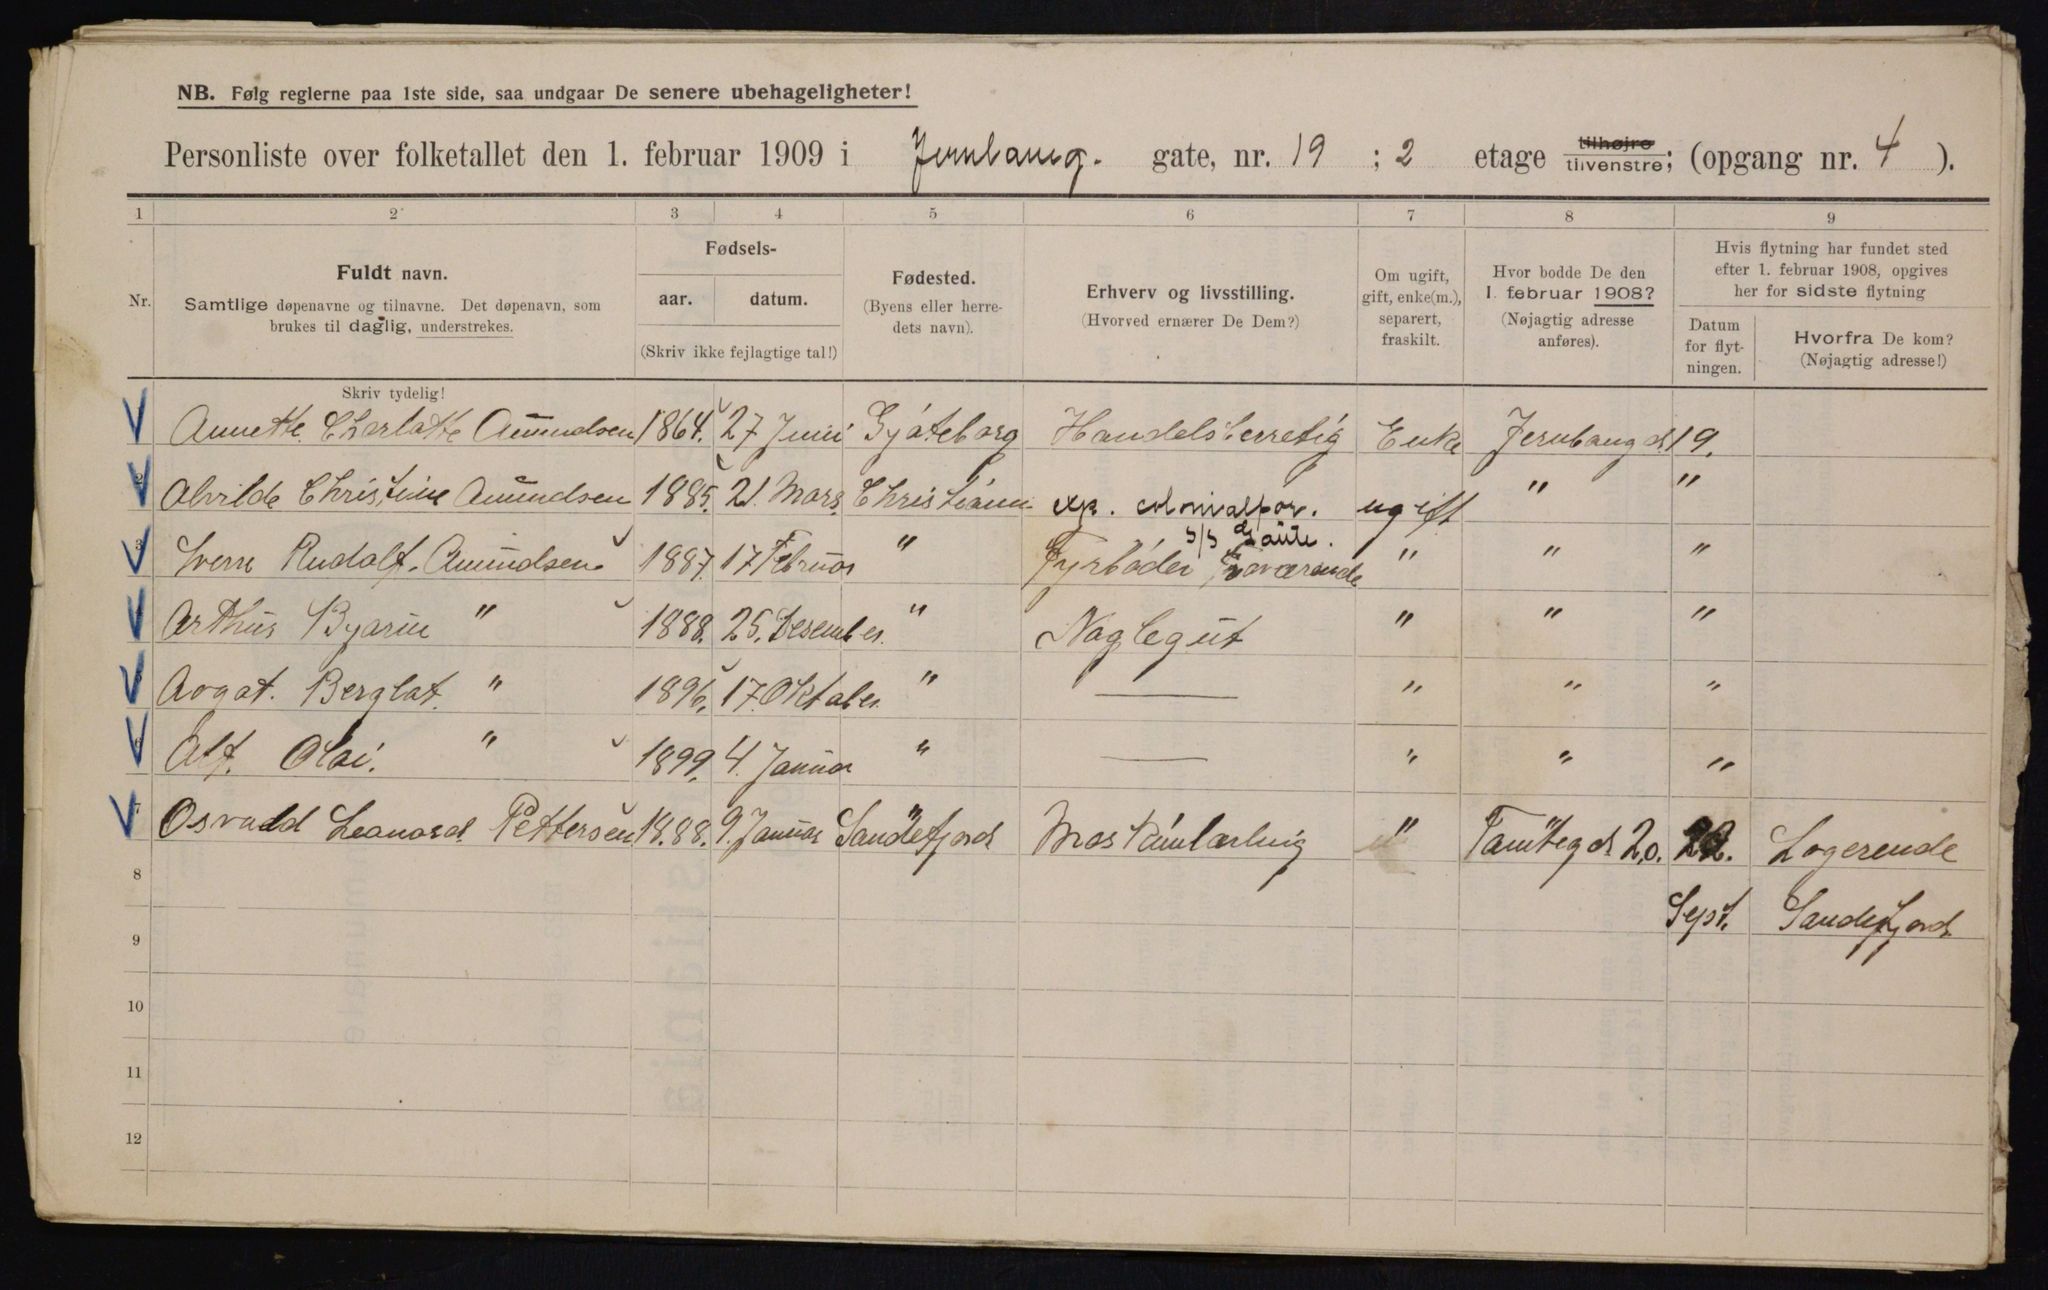 NB. Følg reglerne paa 1ste side, saa undgaar De senere ubehageligheter!
Personliste over folketallet den 1. februar 1909 i Jernbaneg. gate, nr. 19 ; 2 etage tilhøjre tilvenstre; (opgang nr. 4 ).
1 2 3 4 5 6 7 8 9
Nr.
Fuldt navn.
Samtlige døpenavne og tilnavne. Det døpenavn, som
brukes til daglig, understrekes.
Fødsels-
aar. datum.
(Skriv ikke fejlagtige tal!)
Fødested.
(Byens eller herre-
dets navn).
Erhverv og livsstilling.
(Hvorved ernærer De Dem?)
Om ugift,
gift, enke(m.),
separert,
fraskilt.
Hvor bodde De den
1. februar 1908?
(Nøjagtig adresse
anføres).
Hvis flytning har fundet sted
efter 1. februar 1908, opgives
her for sidste flytning
Datum
for flyt-
ningen.
Hvorfra De kom?
(Nøjagtig adresse!)
Skriv tydelig!
Annette Charlotte Amundsen 1864. 27 Juni Gjøteborg Handelsberretig Enke Jernbangd 19.
2 Alvilde Christine Amundsen 1885. 21. Mars. Christiania exp. colonialfor. ugift " "
s/s Gaute.
3 Sverre Rudolf. Amundsen 1887. 17 Februar " Fyrbøder " " "
4 Arthur Bjarne " 1888. 25. Desember. " Naglegut " " "
Aagot. Bergliot. " 1896. 17. Oktober. " — " " "
6 Alf. Olai. " 1899. 4. Januar " — " " "
7 Osvald Leonard Pettersen 1888. 9. Januar Sandefjord Maskinlærling " Tomtegd 20. 22. Logerende
8 Sept. Sandefjord
9
10
11
12